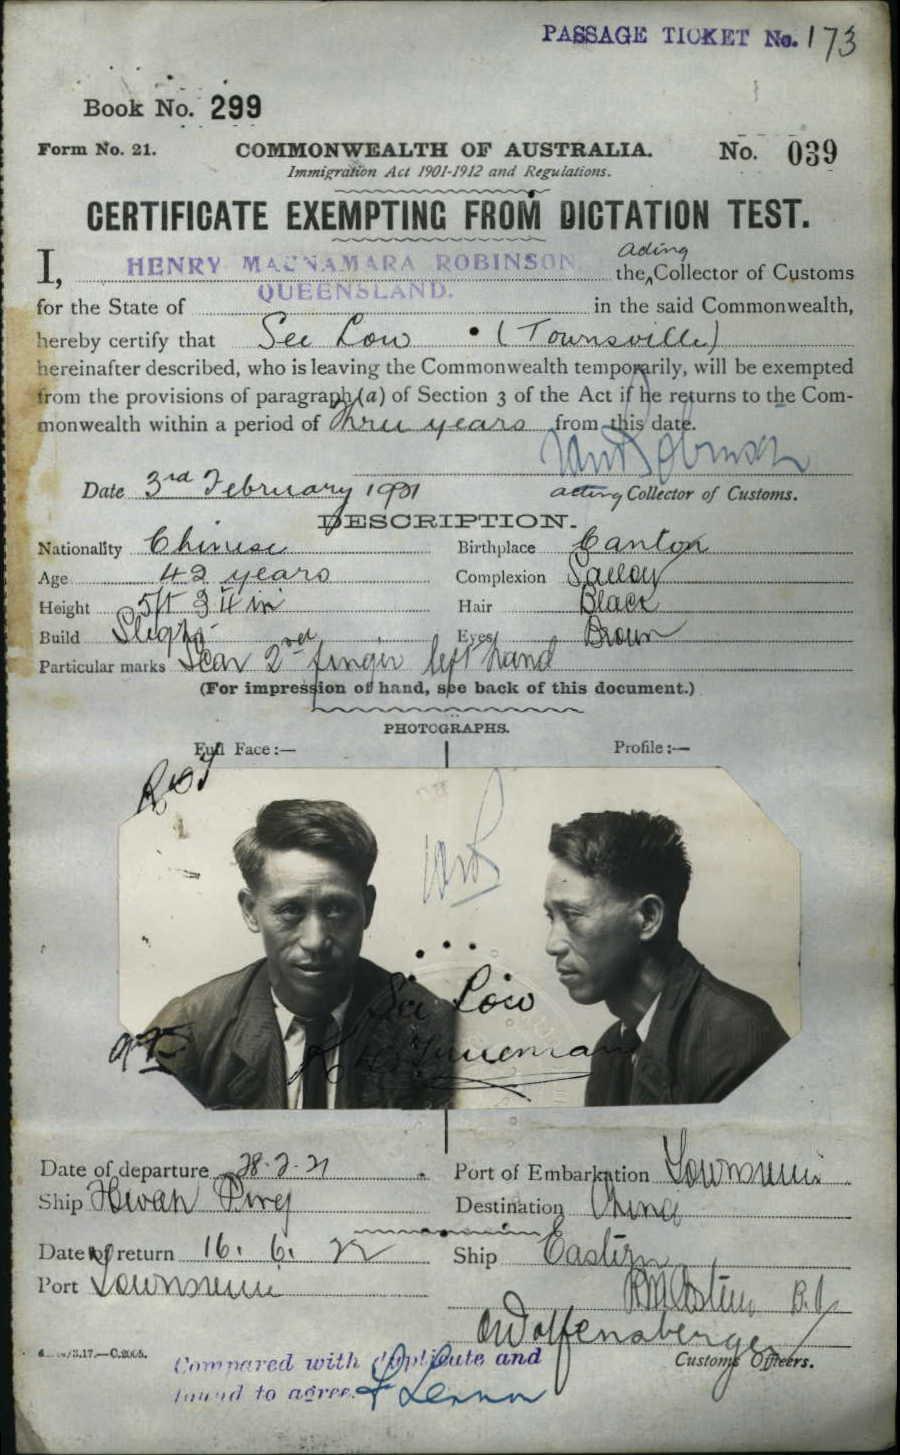 PASSAGE TICKET No. 173
Book No. 299
Form No. 21. COMMONWEALTH OF AUSTRALIA. No. 039
Immigration Act 1901-1912 and Regulations.
CERTIFICATE EXEMPTING FROM DICTATION TEST.
I, HENRY MACNAMARA ROBINSON the acting Collector of Customs
for the State of QUEENSLAND. in the said Commonwealth,
hereby certify that See Low (Townsville)
hereinafter described, who is leaving the Commonwealth temporarily, will be exempted
from the provisions of paragraph (a) of Section 3 of the Act if he returns to the Com-
monwealth within a period of Three years from this date.
Date 3rd February 1921 acting Collector of Customs.
DESCRIPTION.
Nationality Chinese Birthplace Canton
Age 42 years Complexion Sallow
Height 5ft Hair Black
Build Slight Eyes Brown
Particular marks Scar 2nd finger left hand
(For impression of hand, see back of this document.)
PHOTOGRAPHS.
Full Face:— Profile:—
See Low
Date of departure 28.2.21 Port of Embarkation Townsville
Ship Hwah Ping Destination China
Date of return 16. 6. 22 Ship Eastern
Port Townsville
O Wolfensberger
Customs Officers.
3.17.—C.2005.
Compared with duplicate and
found to agree.